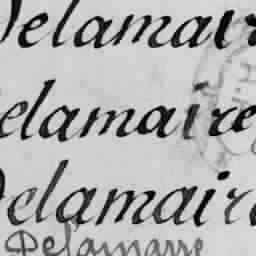 Delamair
elamaire
Delamaire
Delamarre